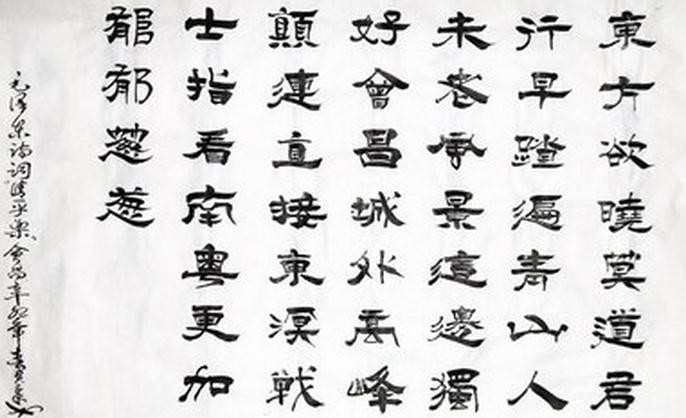 東方欲曉莫道君
行早踏遍青山人
未老風景這邊獨
好會昌城外高峰
顛連直接東溟戰
士指看南粵更加
郁郁蔥葱
毛泽东诗词清平樂会昌辛卯年春